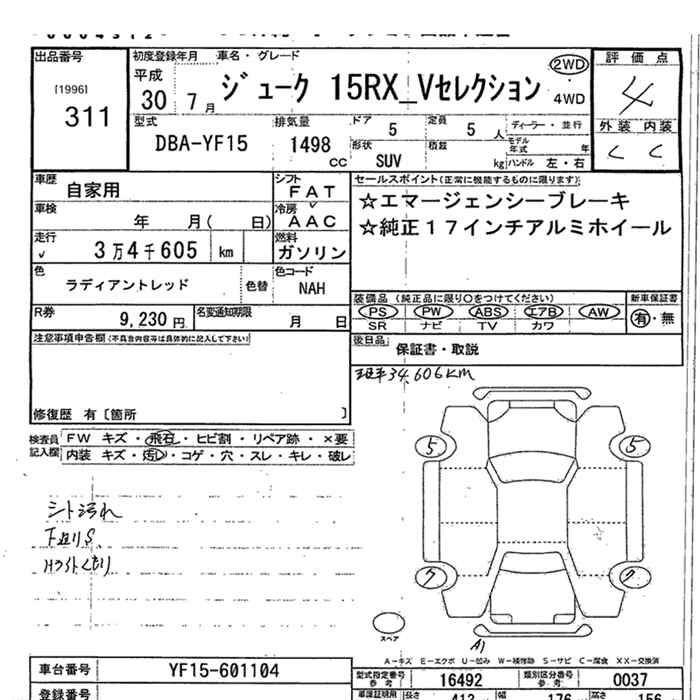 出品番号
[1996]
311
初度登録年月
平成
30 7月
車名・グレード
ジューク 15RX_Vセレクション
2WD
・
4WD
評価点
4
外装 内装
C C
型式
DBA-YF15
排気量
1498
cc
ドア
5
定員
5 人
形状
SUV
積載
kg
ディーラー・並行
モデル
年式 年
ハンドル 左・右
車歴
自家用
シフト
FAT
車検
年 月( 日)
冷房
AAC
走行
3万4千605 km
燃料
ガソリン
色
ラディアントレッド
色替
色コード
NAH
R券
9,230 円
名変通知期限
月 日
セールスポイント(正常に機能するものに限ります)
☆エマージェンシーブレーキ
☆純正17インチアルミホイール
装備品(純正品に限り○をつけてください)
PS PW ABS エアB AW
SR ナビ TV カワ
新車保証書
有・無
後日品
保証書・取説
注意事項申告欄(不具合内容等は具体的に記入して下さい)
修復歴 有〔箇所 〕
34,606KM
検査員
記入欄
FW キズ・飛石・ヒビ割・リペア跡・×要
内装 キズ・汚レ・コゲ・穴・スレ・キレ・破レ
シート汚れ
下廻りS
5
5
7
7
スペア
A1
A-キズ E-エクボ U-凹み W-補修跡 S-サビ C-腐食 XX-交換済
車台番号
YF15-601104
型式指定番号
参考
16492
類別区分番号
参考
0037
登録番号
車濃証明用
長さ
413
幅
176
高さ
156